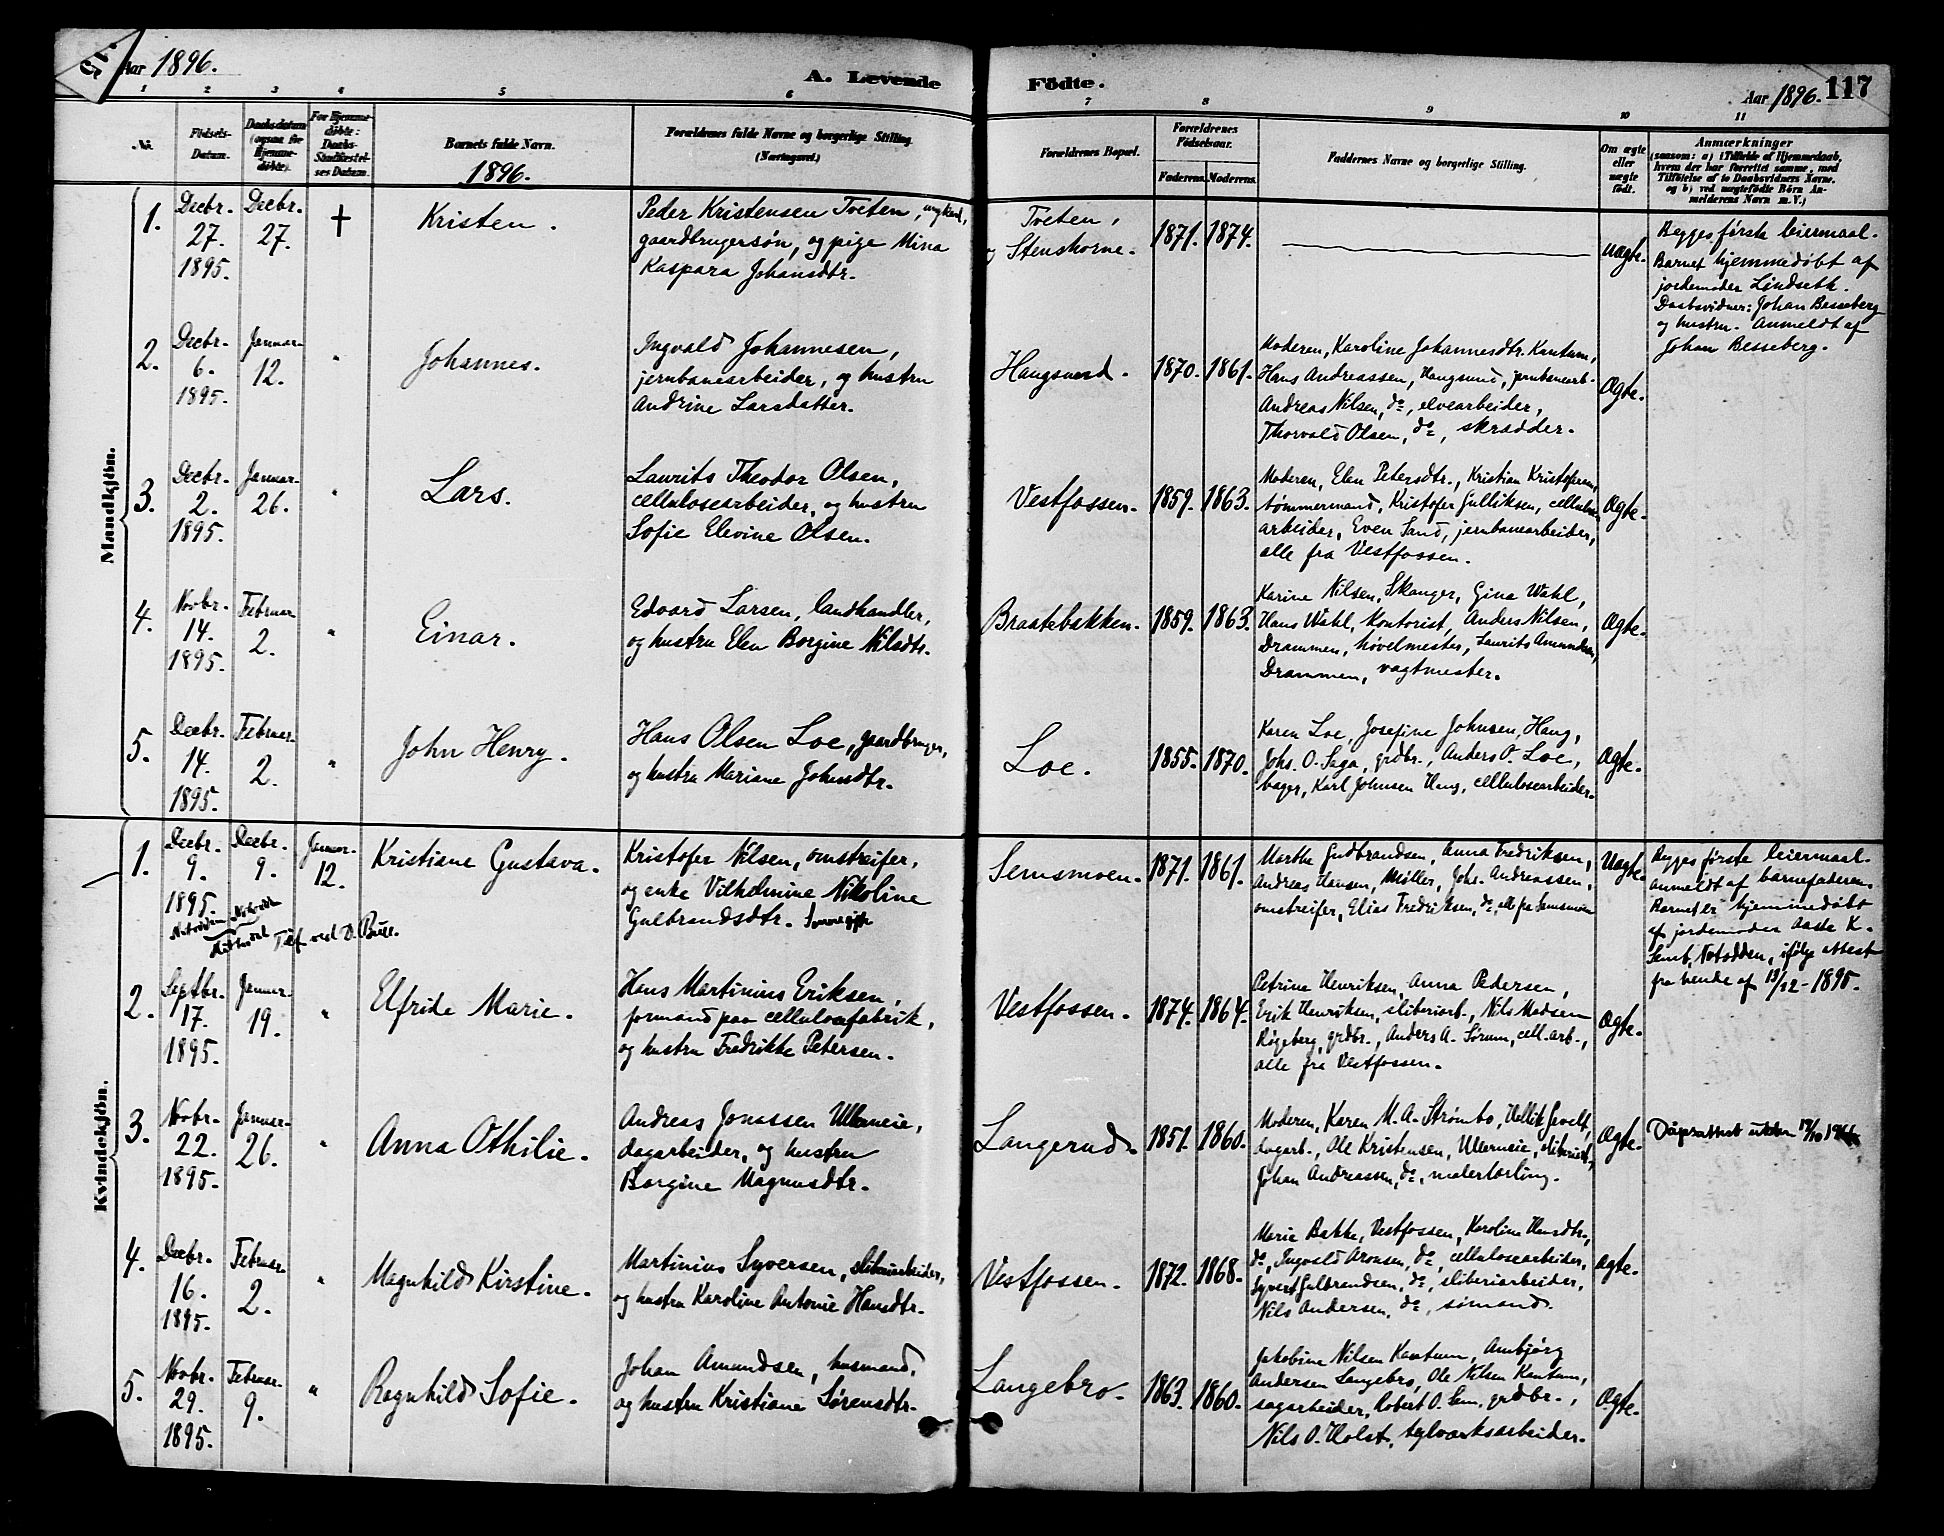 Aar 1896.
A. Levende
Födte.
Aar 1896.
117
1 2 3 4 5 6 7 8 9 10 11
No.
Födsels-Datum.
Daabsdatum (ogsaa for Hjemme-döbte).
For Hjemme-döbte: Daabs-Stadfæstel-ses Datum.
Barnets fulde Navn.
1896.
Forældrenes fulde Navne og borgerlige Stilling.
(Næringsvei.)
Forældrenes Bopæl.
Forældrenes Födselsaar.
Faderens. Moderens.
Faddernes Navne og borgerlige Stilling.
Om ægte eller uægte födt.
Anmærkninger
(saasom: a) i Tilfælde af Hjemmedaab, hvem der har forrettet samme, med Tilföielse af to Daabsvidners Navne, og b) ved uægtefödte Börn An-melderens Navn m. V.)
Mandkjön.
1.
Decbr. 27. 1895.
Decbr. 27.
†
Kristen.
Peder Kristensen Tveten, ungkarl,
gaardbrugersøn, og pige Mina
Kaspara Johansdtr.
Tveten,
og Stenshorne.
1871. 1874.
Uægte.
Begges første leiermaal.
Barnet hjemmedøbt af
jordemoder Lindseth.
Daabsvidner: Johan Besseberg
og hustru. Anmeldt af
Johan Besseberg.
2.
Decbr. 6. 1895.
Januar 12.
"
Johannes.
Ingvald Johannesen,
jernbanearbeider, og hustru
Andrine Larsdatter.
Haugsund.
1870. 1861.
Moderen, Karoline Johannesdtr. Kantum,
Hans Andreassen, Haugsund, jernbanearb.
Andreas Nilsen, do, elvearbeider,
Thorvald Olsen, do, skrædder.
Ægte.
3.
Decbr. 2. 1895.
Januar 26.
"
Lars.
Laurits Theodor Olsen,
cellulosearbeider, og hustru
Sofie Elevine Olsen.
Vestfossen.
1859. 1863.
Moderen, Elen Petersdtr., Kristian Kristofersen,
tømmermand, Kristofer Gulliksen, cellulose
arbeider, Even Sand, jernbanearbeider,
alle fra Vestfossen.
Ægte.
4.
Novbr. 14. 1895.
Februar 2.
"
Einar.
Edvard Larsen, landhandler,
og hustru Elen Borgine Nilsdtr.
Braatebakken.
1859. 1863.
Karine Nilsen, Skanger, Gina Wahl,
Hans Wahl, kontorist, Anders Nilsen,
Drammen, høvelmester, Laurits Amundsen,
Drammen, vagtmester.
Ægte.
5.
Decbr. 14. 1895.
Februar 2.
"
John Henry.
Hans Olsen Loe, gaardbruger,
og hustru Mariane Johnsdtr.
Loe.
1855. 1870.
Karen Loe, Josefine Johnsen, Haug,
Johs. O. Saga, grdbr., Anders O. Loe,
bager, Karl Johnsen Haug, cellulosearbeider.
Ægte.
Kvindekjön.
1.
Decbr. 9. 1895
Decbr. 9.
Januar 12.
Kristiane Gustava.
Kristofer Nilsen, omstreifer,
og enke Vilhelmine Nikoline
Gulbrandsdtr.
Semsmoen.
1871. 1861.
Marthe Gudbrandsen, Anna Fredriksen,
Andreas Hansen, Møller, Johs. Andreassen,
omstreifer, Elias Fredriksen, do, alle fra Semsmoen
Uægte.
Begges første leiermaal.
Anmeldt af barnefaderen.
Barnet er hjemmedøbt
af jordemoder Aaste K.
Semb, Notodden, ifølge attest
fra hende af 13/12-1895.
2.
Septbr. 17. 1895.
Januar 19.
"
Elfride Marie.
Hans Martinius Eriksen,
formand paa cellulosefabrik,
og hustru Fredrikke Petersen.
Vestfossen.
1874. 1864.
Petrine Henriksen, Anna Pedersen,
Erik Henriksen, sliberiarb., Nils Madsen
Røgeberg, grdbr., Anders A. Sørum, cell.arb.,
alle fra Vestfossen.
Ægte.
3.
Novbr. 22. 1895.
Januar 26.
"
Anna Othilie.
Andreas Jonassen Ullerneie,
dagarbeider, og hustru
Borgine Magnusdtr.
Langerud.
1851. 1860.
Moderen, Karen M. A. Strømbo,
dagarb., Ole Kristensen, Ullerneie,
Johan Andreassen, do, malerlærling.
Ægte.
4.
Decbr. 16. 1895.
Februar 2.
"
Magnhild Kirstine.
Martinius Syversen, sliberiarbeider,
og hustru Karoline Antonie Hansdtr.
Vestfossen.
1872. 1868.
Marie Bakke, Vestfossen, Karoline Hansdtr.,
do, Ingvald Aronsen, do, cellulosearbeider,
Syvert Gulbrandsen, do, sliberiarbeider,
Nils Andersen, do, sømand.
Ægte.
5.
Novbr. 29. 1895.
Februar 9.
"
Ragnhild Sofie.
Johan Amundsen, husmand,
og hustru Kristiane Sørensdtr.
Langebro.
1863. 1860.
Jakobine Nilsen Kantum, Ambjørg
Andersen Langebro, Ole Nilsen Kantum,
sagarbeider, Robert O. Sem, grdbr.,
Nils O. Holst, teglværksarbeider.
Ægte.